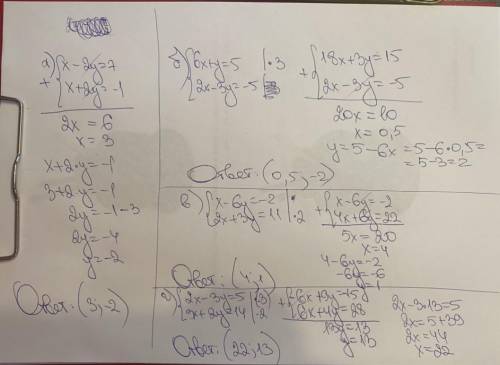 а) {x-2y=7
+ {x+2y=-1
2x=6
x=3
x+2·y=-1
3+2y=-1
2y=-1-3
2y=-4
y=-2
Ответ: (3;-2)
б) {6x+y=5 |·3
{2x-3y=-5
+ {18x+3y=15
{2x-3y=-5
20x=10
x=0,5
y=5-6x=5-6·0,5=
=5-3=2
Ответ: (0,5;-2)
в) {x-6y=-2
{2x+3y=11 |·2
+ {x-6y=-2
{4x+6y=22
5x=20
x=4
4-6y=-2
-6y=-6
y=1
Ответ: (4;1
г) {2x-3y=5 |·3
{3x+2y=14 |·2
13y=13
y=13
2x-3·13=5
2x=5+39
2x=44
x=22
Ответ: (22;13)